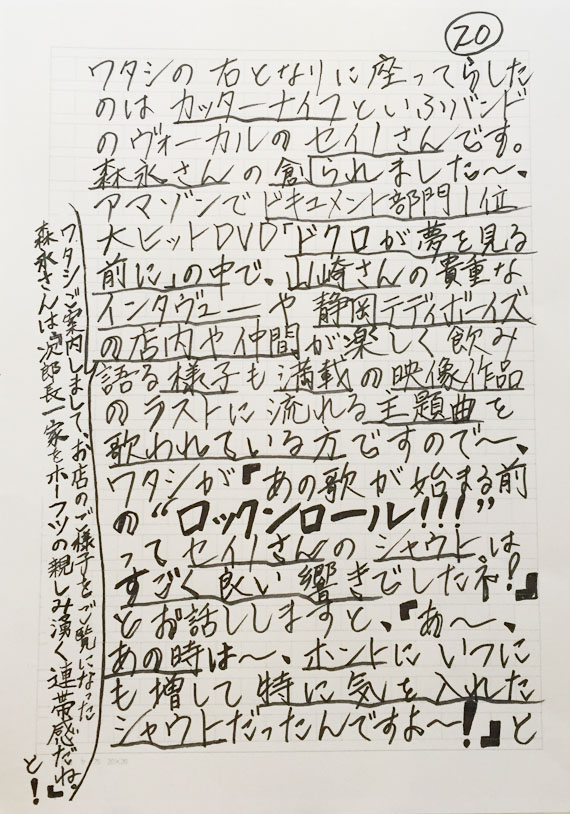 20
ワタシの右となりに座ってらした
のはカッターナイフといふバンド
のヴォーカルのセイノさんです。
森永さんの創られました〜、
アマゾンでドキュメント部門1位
大ヒットDVD「ドクロが夢を見る
前に」の中で、山崎さんの貴重な
インタヴューや静岡テディボーイズ
の店内や仲間が楽しく飲み
語る様子も満載の映像作品
のラストに流れる主題曲を
歌われている方ですので〜、
ワタシが『あの歌が始まる前
の“ロックンロール!!!”
ってセイノさんのシャウトは
すごく良い響きでしたネ!』
とお話ししますと、『あ〜、
あの時は〜、ホントにいつに
も増して特に気を入れた
シャウトだったんですよ〜!』と
ワタシご案内しまして、お店のご様子をご覧になった
森永さんは『次郎長一家をホーフツの親しみ湧く連帯感だね。
!』と